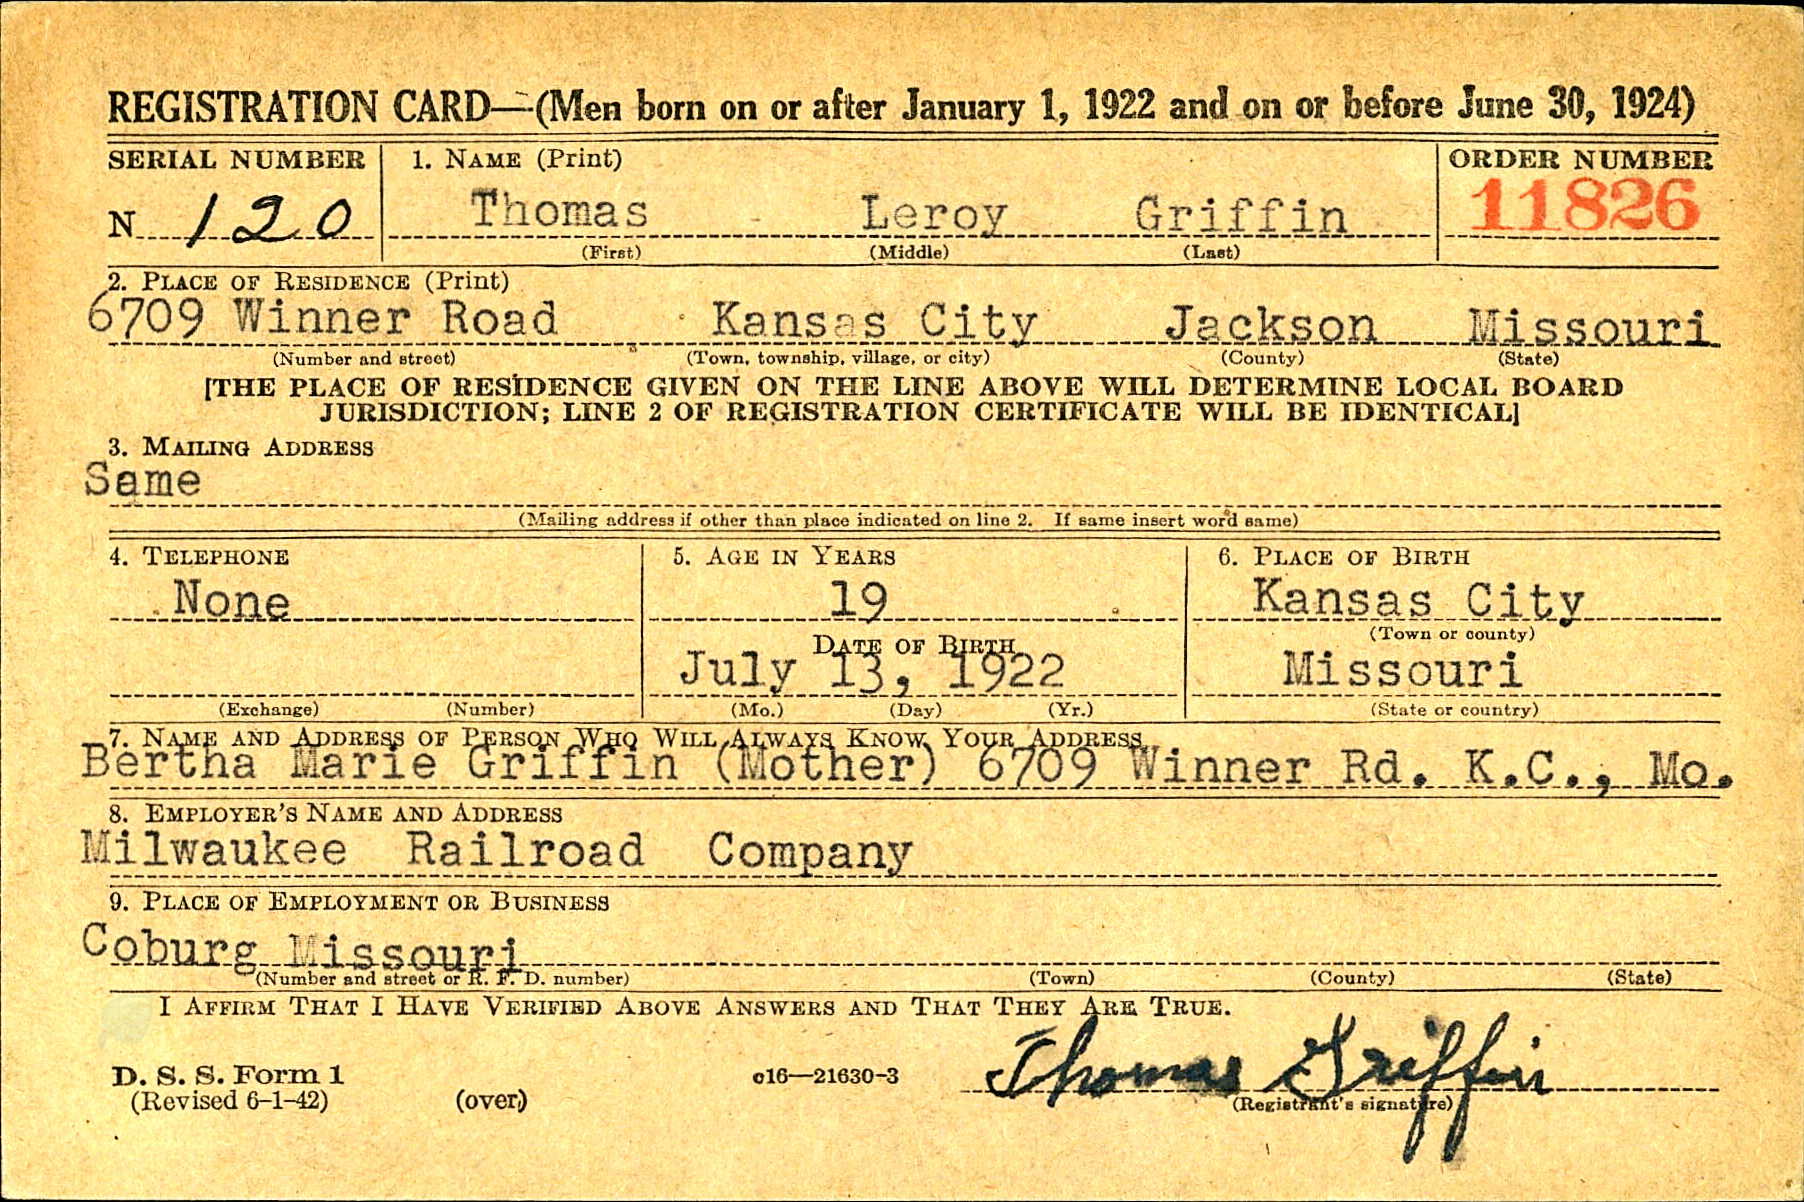 REGISTRATION CARD—(Men born on or after January 1, 1922 and on or before June 30, 1924)
SERIAL NUMBER 1. NAME (Print) ORDER NUMBER
N 120 Thomas Leroy Griffin 11826
(First) (Middle) (Last)
2. PLACE OF RESIDENCE (Print)
6709 Winner Road Kansas City Jackson Missouri
(Number and street) (Town, township, village, or city) (County) (State)
[THE PLACE OF RESIDENCE GIVEN ON THE LINE ABOVE WILL DETERMINE LOCAL BOARD
JURISDICTION; LINE 2 OF REGISTRATION CERTIFICATE WILL BE IDENTICAL]
3. MAILING ADDRESS
Same
(Mailing address if other than place indicated on line 2. If same insert word same)
4. TELEPHONE 5. AGE IN YEARS 6. PLACE OF BIRTH
None 19 Kansas City
DATE OF BIRTH (Town or county)
July 13, 1922 Missouri
(Exchange) (Number) (Mo.) (Day) (Yr.) (State or country)
7. NAME AND ADDRESS OF PERSON WHO WILL ALWAYS KNOW YOUR ADDRESS
Bertha Marie Griffin (Mother) 6709 Winner Rd. K.C., Mo.
8. EMPLOYER'S NAME AND ADDRESS
Milwaukee Railroad Company
9. PLACE OF EMPLOYMENT OR BUSINESS
Coburg Missouri
(Number and street or R. F. D. number) (Town) (County) (State)
I AFFIRM THAT I HAVE VERIFIED ABOVE ANSWERS AND THAT THEY ARE TRUE.
Thomas Griffin
D. S. S. Form 1 c16—21630-3
(Revised 6-1-42) (over) (Registrant's signature)